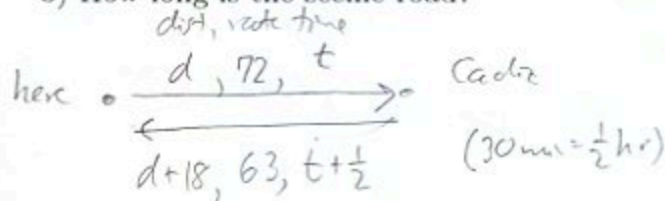 dist, rate time
d, 72, t
here
Cadiz
d+18, 63, t+½
(30min = ½hr)